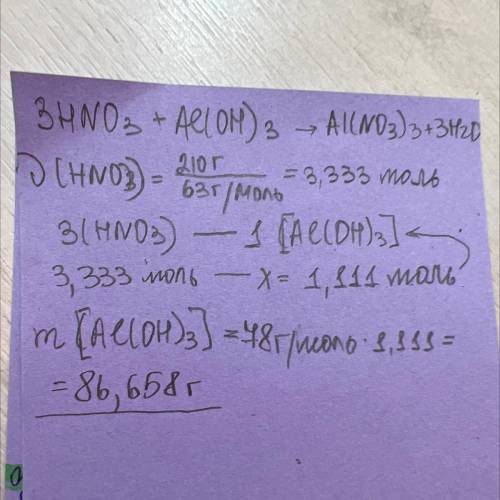 3HNO3 + Al(OH)3 → Al(NO3)3+3H2O
ν(HNO3) = 210г / 63г/моль = 3,333 моль
3(HNO3) — 1 [Al(OH)3]
3,333 моль — x = 1,111 моль
m [Al(OH)3] = 78г/моль · 1,111 =
= 86,658г